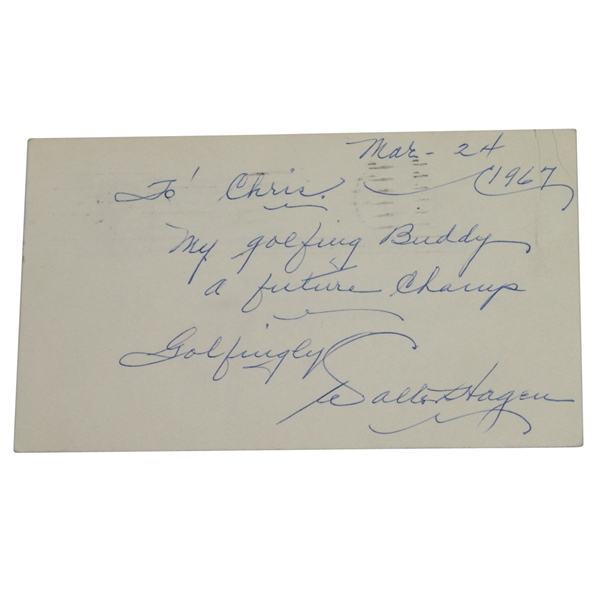 Mar- 24
1967
To' Chris.
My golfing Buddy
a future Champ
Golfingly
Walter Hagen